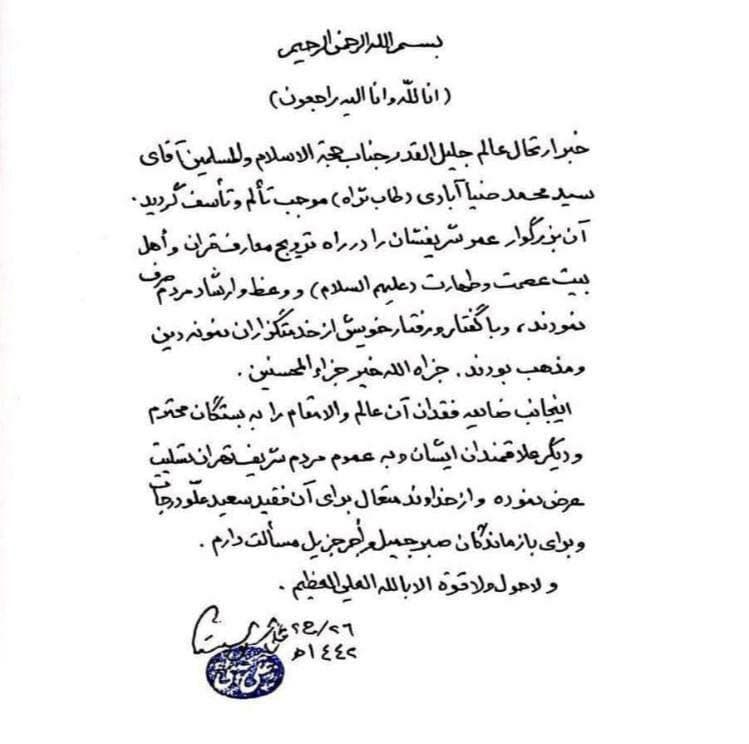 بسم الله الرحمن الرحیم
(انا لله و انا الیه راجعون)
خبر ارتحال عالم جلیل القدر جناب حجة الاسلام والمسلمین آقای
سید محمد ضیاآبادی (طاب ثراه) موجب تألم و تأسف گردید.
آن بزرگوار عمر شریفشان را در راه ترویج معارف قرآن و أهل
بیت عصمت و طهارت (علیهم السلام) و وعظ و ارشاد مردم صرف
نمودند، و با گفتار و رفتار خویش از خدمتگزاران نمونه دین
و مذهب بودند. جزاه الله خیر جزاء المحسنین.
اینجانب ضایعه فقدان آن عالم والامقام را به بستگان محترم
و دیگر علاقمندان ایشان و به عموم مردم شریف تهران تسلیت
عرض نموده و از خداوند متعال برای آن فقید سعید علّو درجات
و برای بازماندگان صبر جمیل و أجر جزیل مسألت دارم.
و لا حول ولا قوة الا بالله العلی العظیم.
٢٦/ج٢
١٤٤٢ﻫ